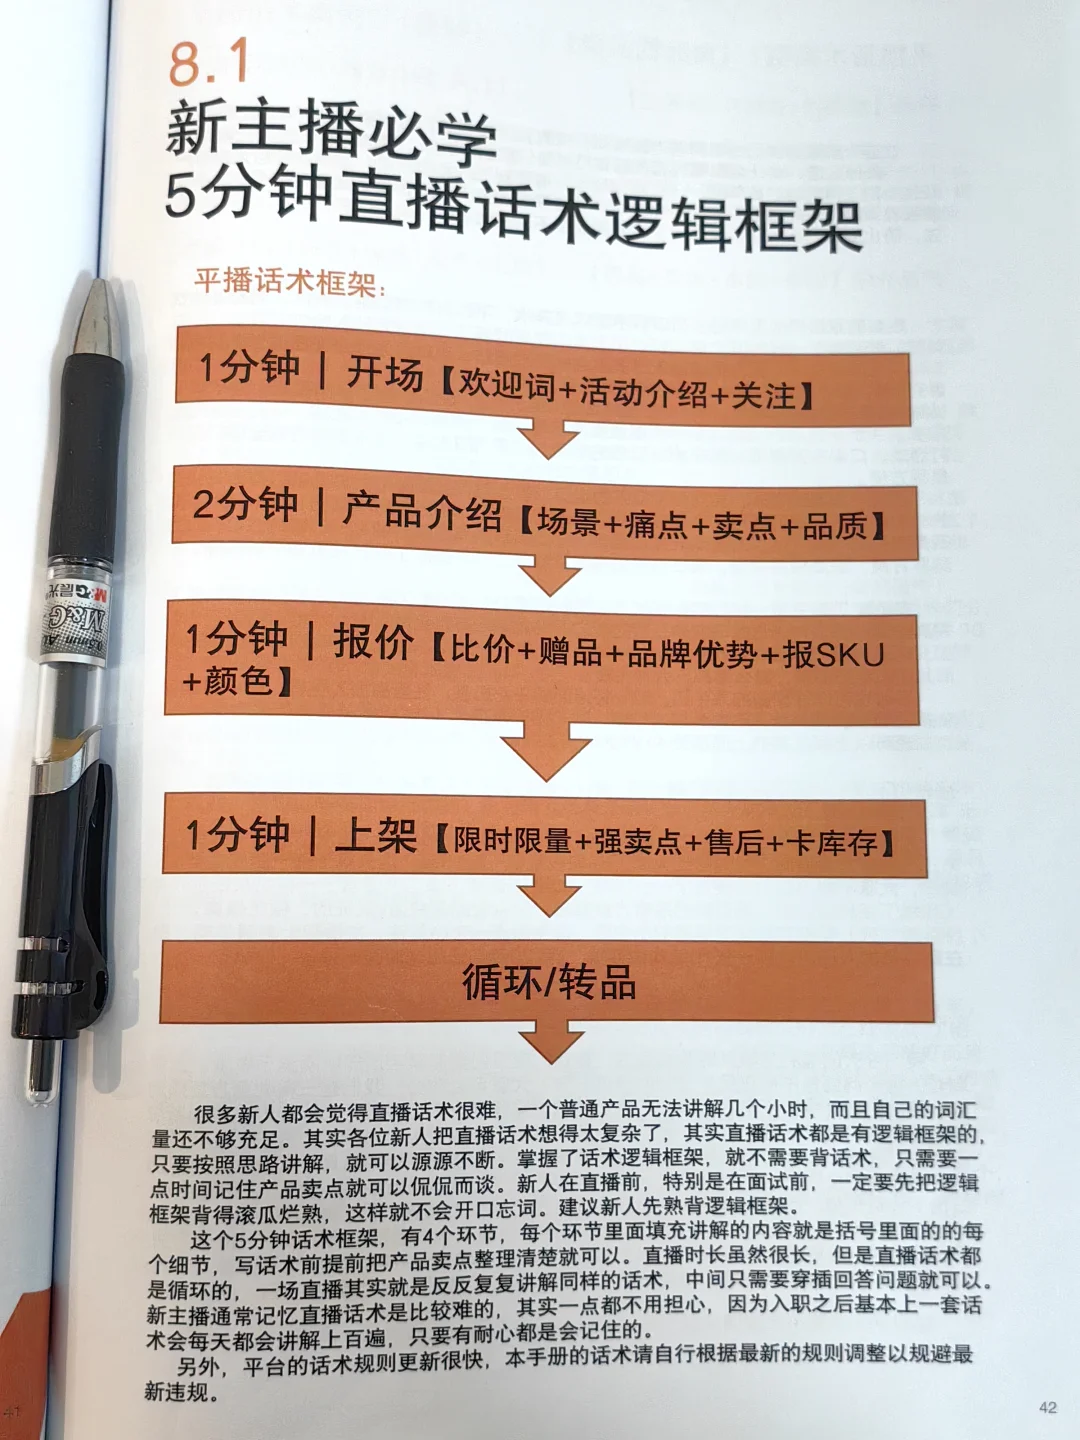 8.1
新主播必学
5分钟直播话术逻辑框架
平播话术框架：
1分钟｜开场【欢迎词+活动介绍+关注】
2分钟｜产品介绍【场景+痛点+卖点+品质】
1分钟｜报价【比价+赠品+品牌优势+报SKU
+颜色】
1分钟｜上架【限时限量+强卖点+售后+卡库存】
循环/转品
很多新人都会觉得直播话术很难，一个普通产品无法讲解几个小时，而且自己的词汇
量还不够充足。其实各位新人把直播话术想得太复杂了，其实直播话术都是有逻辑框架的，
只要按照思路讲解，就可以源源不断。掌握了话术逻辑框架，就不需要背话术，只需要一
点时间记住产品卖点就可以侃侃而谈。新人在直播前，特别是在面试前，一定要先把逻辑
框架背得滚瓜烂熟，这样就不会开口忘词。建议新人先熟背逻辑框架。
这个5分钟话术框架，有4个环节，每个环节里面填充讲解的内容就是括号里面的的每
个细节，写话术前提前把产品卖点整理清楚就可以。直播时长虽然很长，但是直播话术都
是循环的，一场直播其实就是反反复复讲解同样的话术，中间只需要穿插回答问题就可以。
新主播通常记忆直播话术是比较难的，其实一点都不用担心，因为入职之后基本上一套话
术会每天都会讲解上百遍，只要有耐心都是会记住的。
另外，平台的话术规则更新很快，本手册的话术请自行根据最新的规则调整以规避最
新违规。
42
41
M&G晨光
M&G